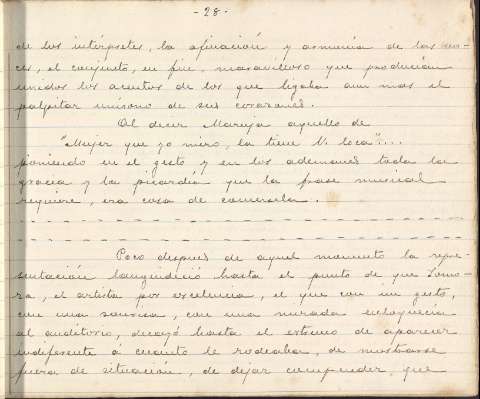 - 28 -
de los intérpretes, la afinación y armonía de las vo-
ces, el conjunto, en fin, maravilloso que producían
unidos los acentos de los que ligaba aun mas el
palpitar unísono de sus corazones.
Al decir Maruja aquello de
"Mujer que yo miro, la tiene V. loca"...
poniendo en el gesto y en los ademanes toda la
gracia y la picardía que la frase musical
requiere, era cosa de comersela.
Poco despues de aquel momento la repre-
sentación languideció hasta el punto de que Zamo-
ra, el artista por excelencia, el que con un gesto,
con una sonrisa, con una mirada enloquecia
al auditorio, decayó hasta el extremo de aparecer
indiferente á cuanto le rodeaba, de mostrarse
fuera de situación, de dejar comprender, que